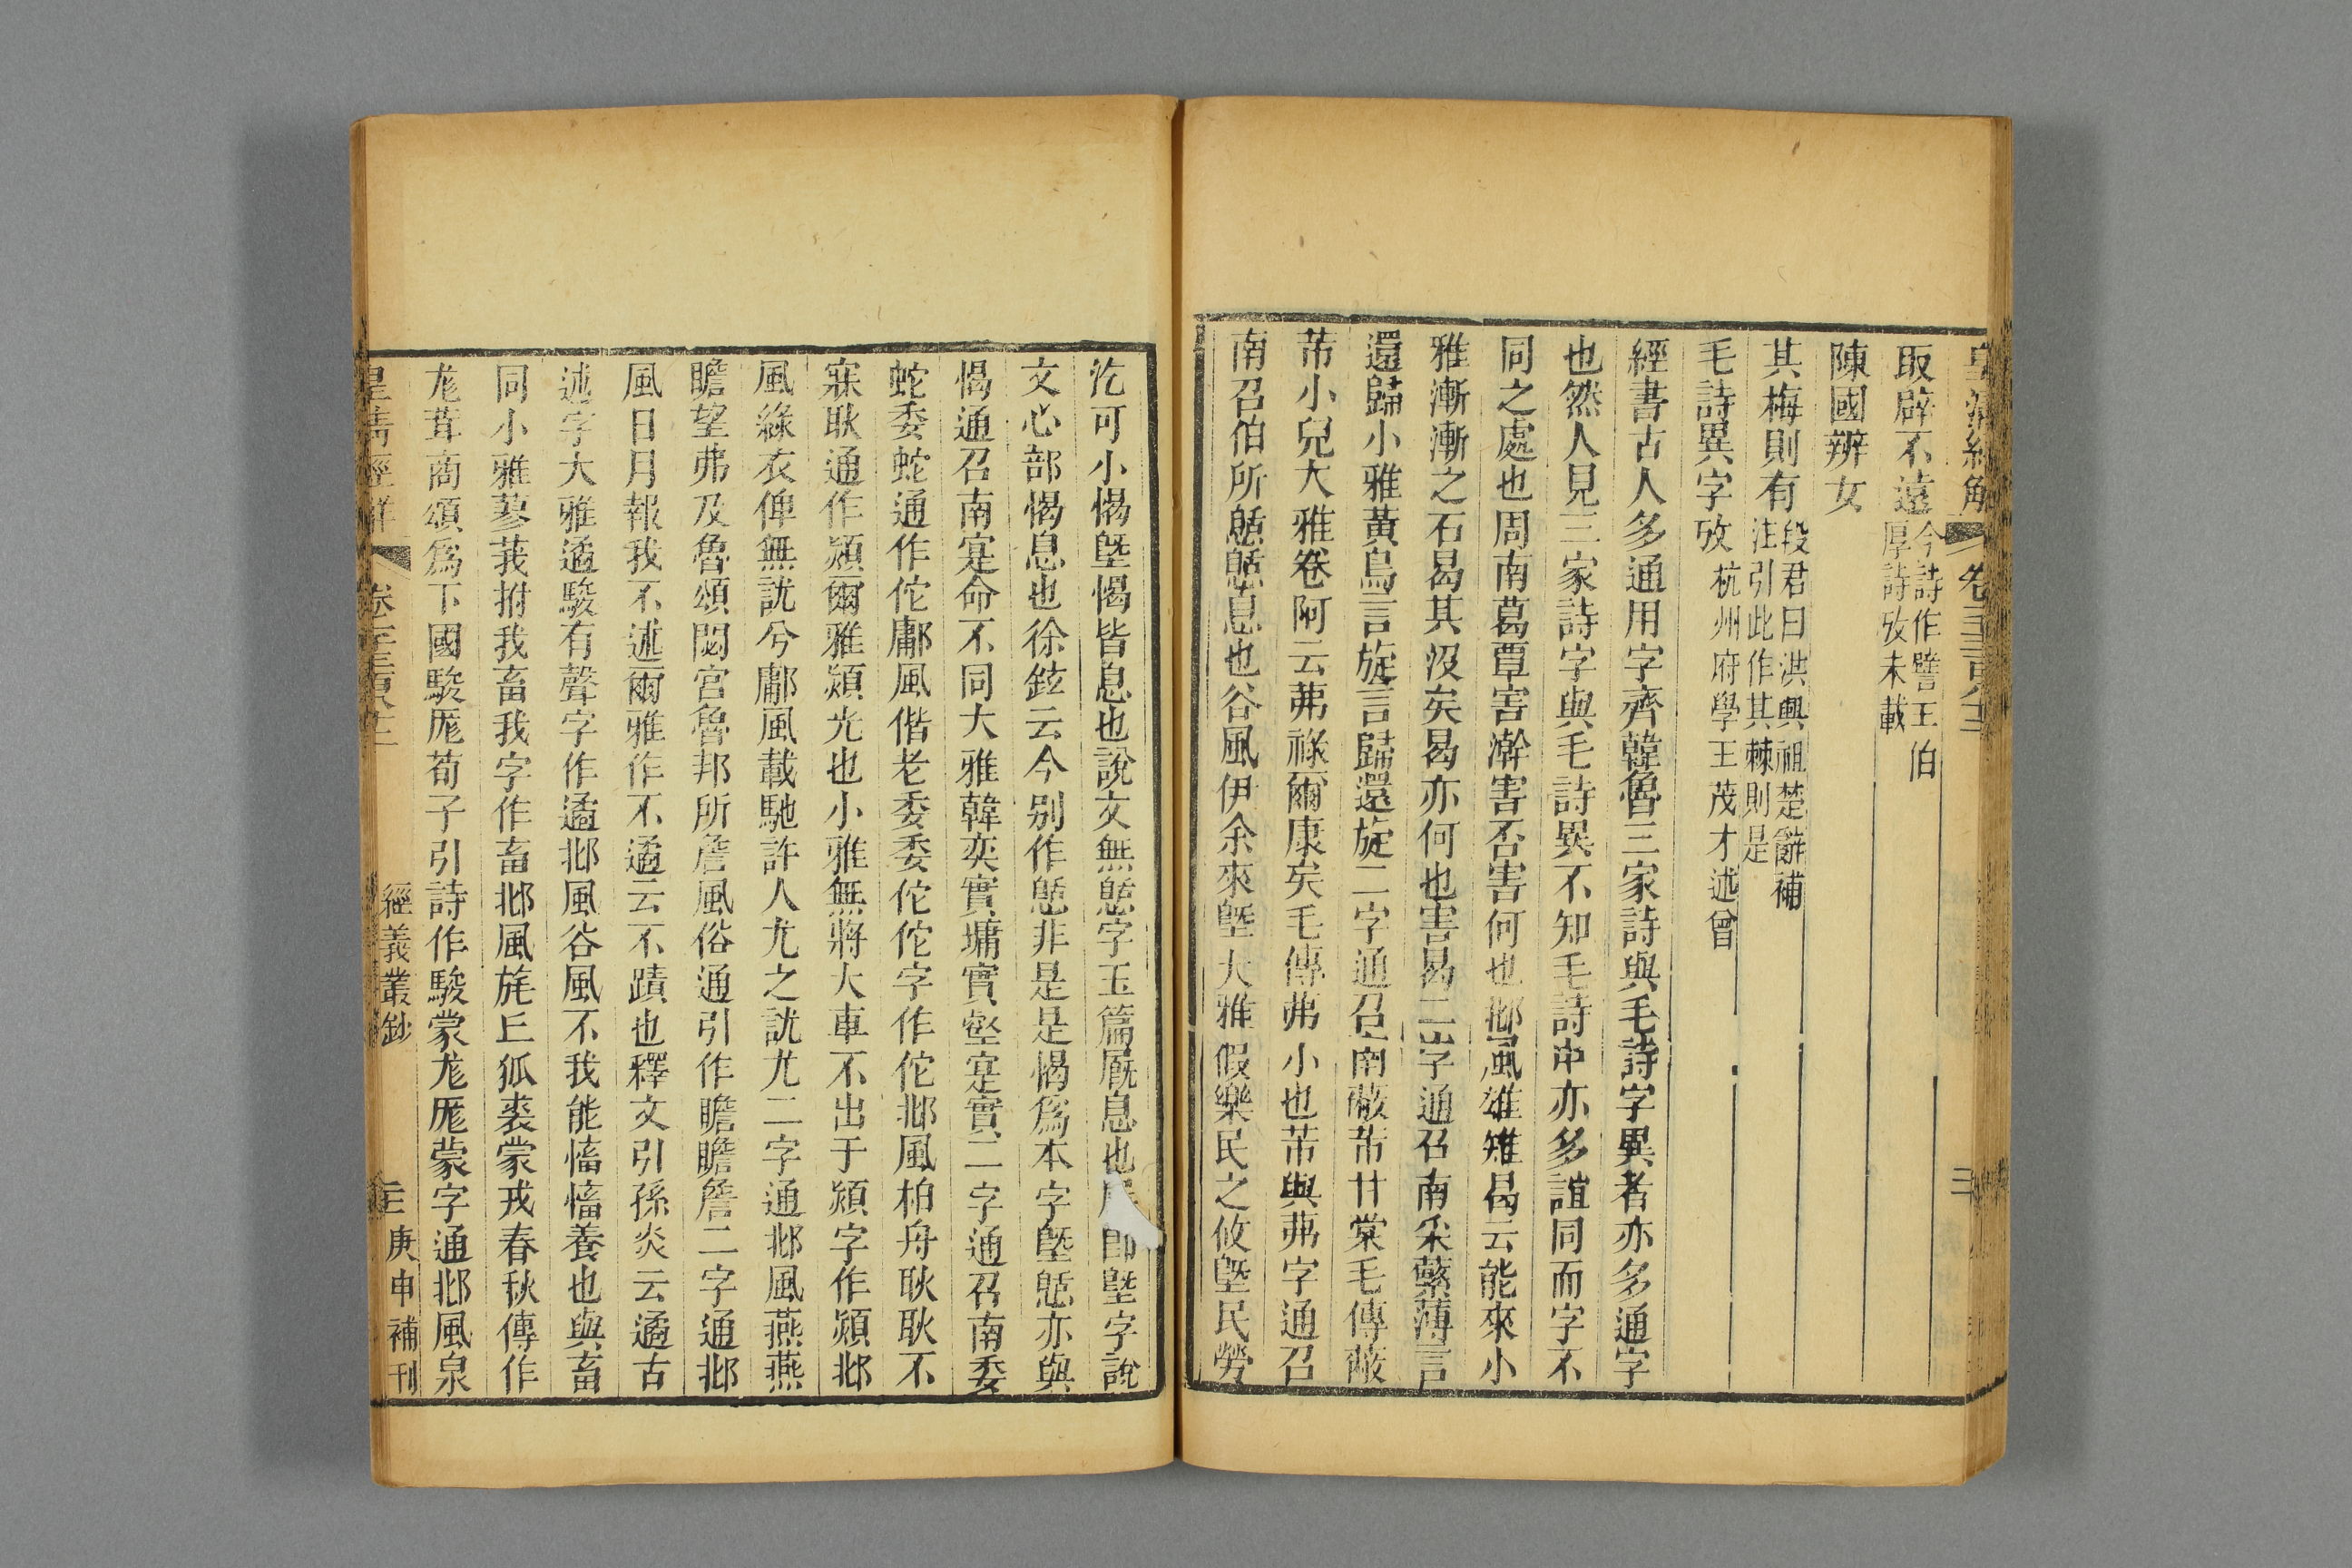 皇清經解 卷千三百八十三 三
取辟不遠今詩作譬王伯厚詩攷未載
陳國辨女
其梅則有段君曰洪興祖楚辭補注引此作其棘則是
毛詩異字攷 杭州府學王茂才述曾
經書古人多通用字齊韓魯三家詩與毛詩字異者亦多通字
也然人見三家詩字與毛詩異不知毛詩中亦多誼同而字不
同之處也周南葛覃害澣害否害何也邶風雄雉曷云能來小
雅漸漸之石曷其沒矣曷亦何也害曷二字通召南采蘩薄言
還歸小雅黃鳥言旋言歸還旋二字通召南蔽芾甘棠毛傳蔽
芾小皃大雅卷阿云茀祿爾康矣毛傳茀小也芾與茀字通召
南召伯所憩憩息也谷風伊余來塈大雅假樂民之攸塈民勞
汔可小愒塈愒皆息也說文無憩字玉篇㞒息也即塈字說
文心部愒息也徐鉉云今別作憩非是是愒爲本字塈憩亦與
愒通召南寔命不同大雅韓奕實墉實壑寔實二字通召南委
蛇委蛇通作佗鄘風偕老委委佗佗字作佗邶風柏舟耿耿不
寐耿通作熲爾雅熲光也小雅無將大車不出于熲字作熲邶
風綠衣俾無訧兮鄘風載馳許人尤之訧尤二字通邶風燕燕
瞻望弗及魯頌閟宮魯邦所詹風俗通引作瞻瞻詹二字通邶
風日月報我不述爾雅作不遹云不蹟也釋文引孫炎云遹古
述字大雅遹駿有聲字作遹邶風谷風不我能慉慉養也與畜
同小雅蓼莪拊我畜我字作畜邶風旄丘狐裘蒙戎春秋傳作
尨茸商頌爲下國駿厖荀子引詩作駿蒙尨厖蒙字通邶風泉
皇淸經解 卷千三百八十三 經義叢鈔 三 庚申補刊